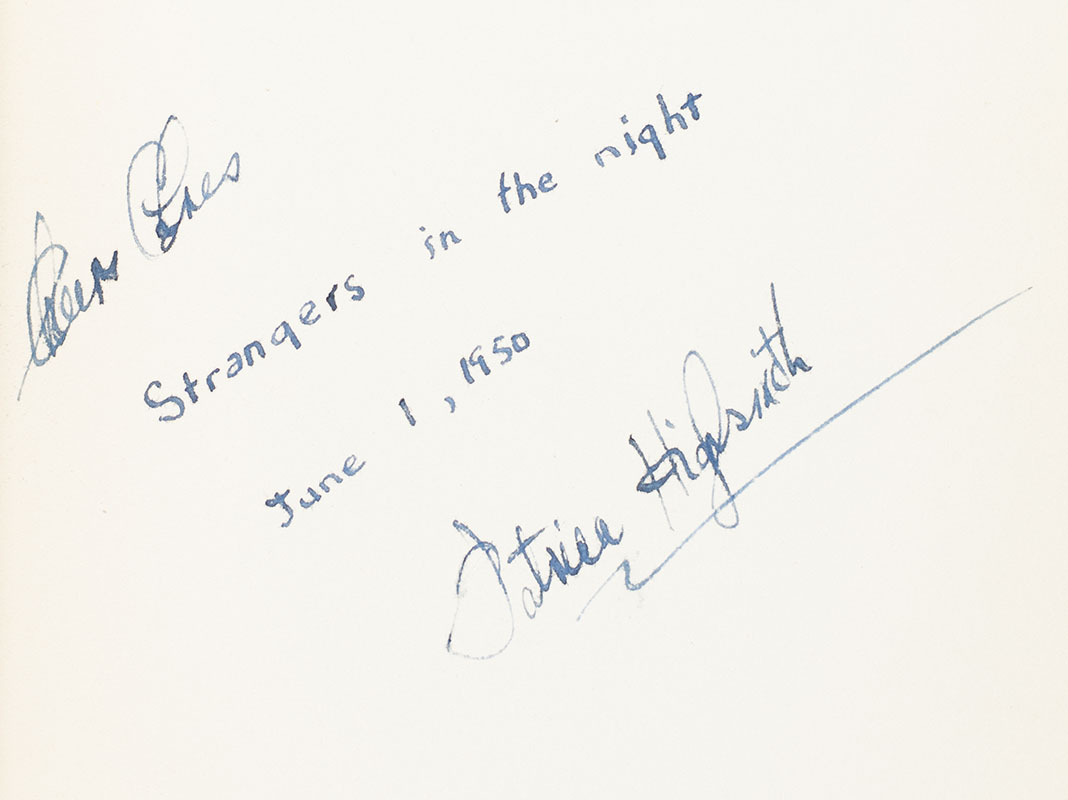 Strangers in the night
June 1, 1950
Patricia Highsmith